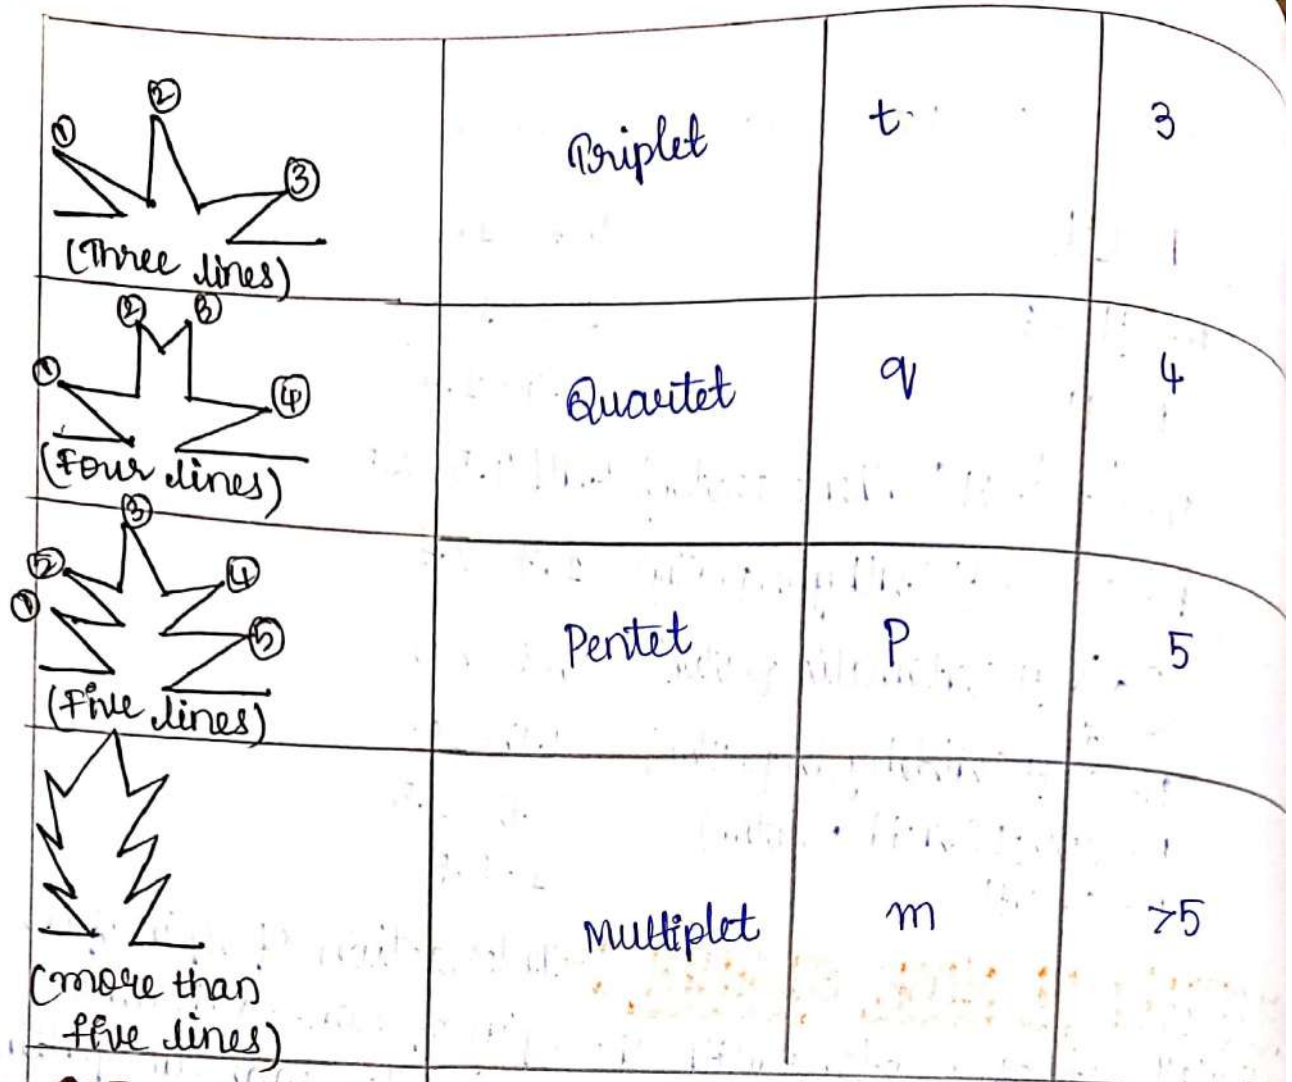 ① ② ③
(Three lines)
Triplet
t
3
① ② ③ ④
(Four lines)
Quartet
q
4
① ② ③ ④ ⑤
(Five lines)
Pentet
P
5
(more than
five lines)
Multiplet
m
>5